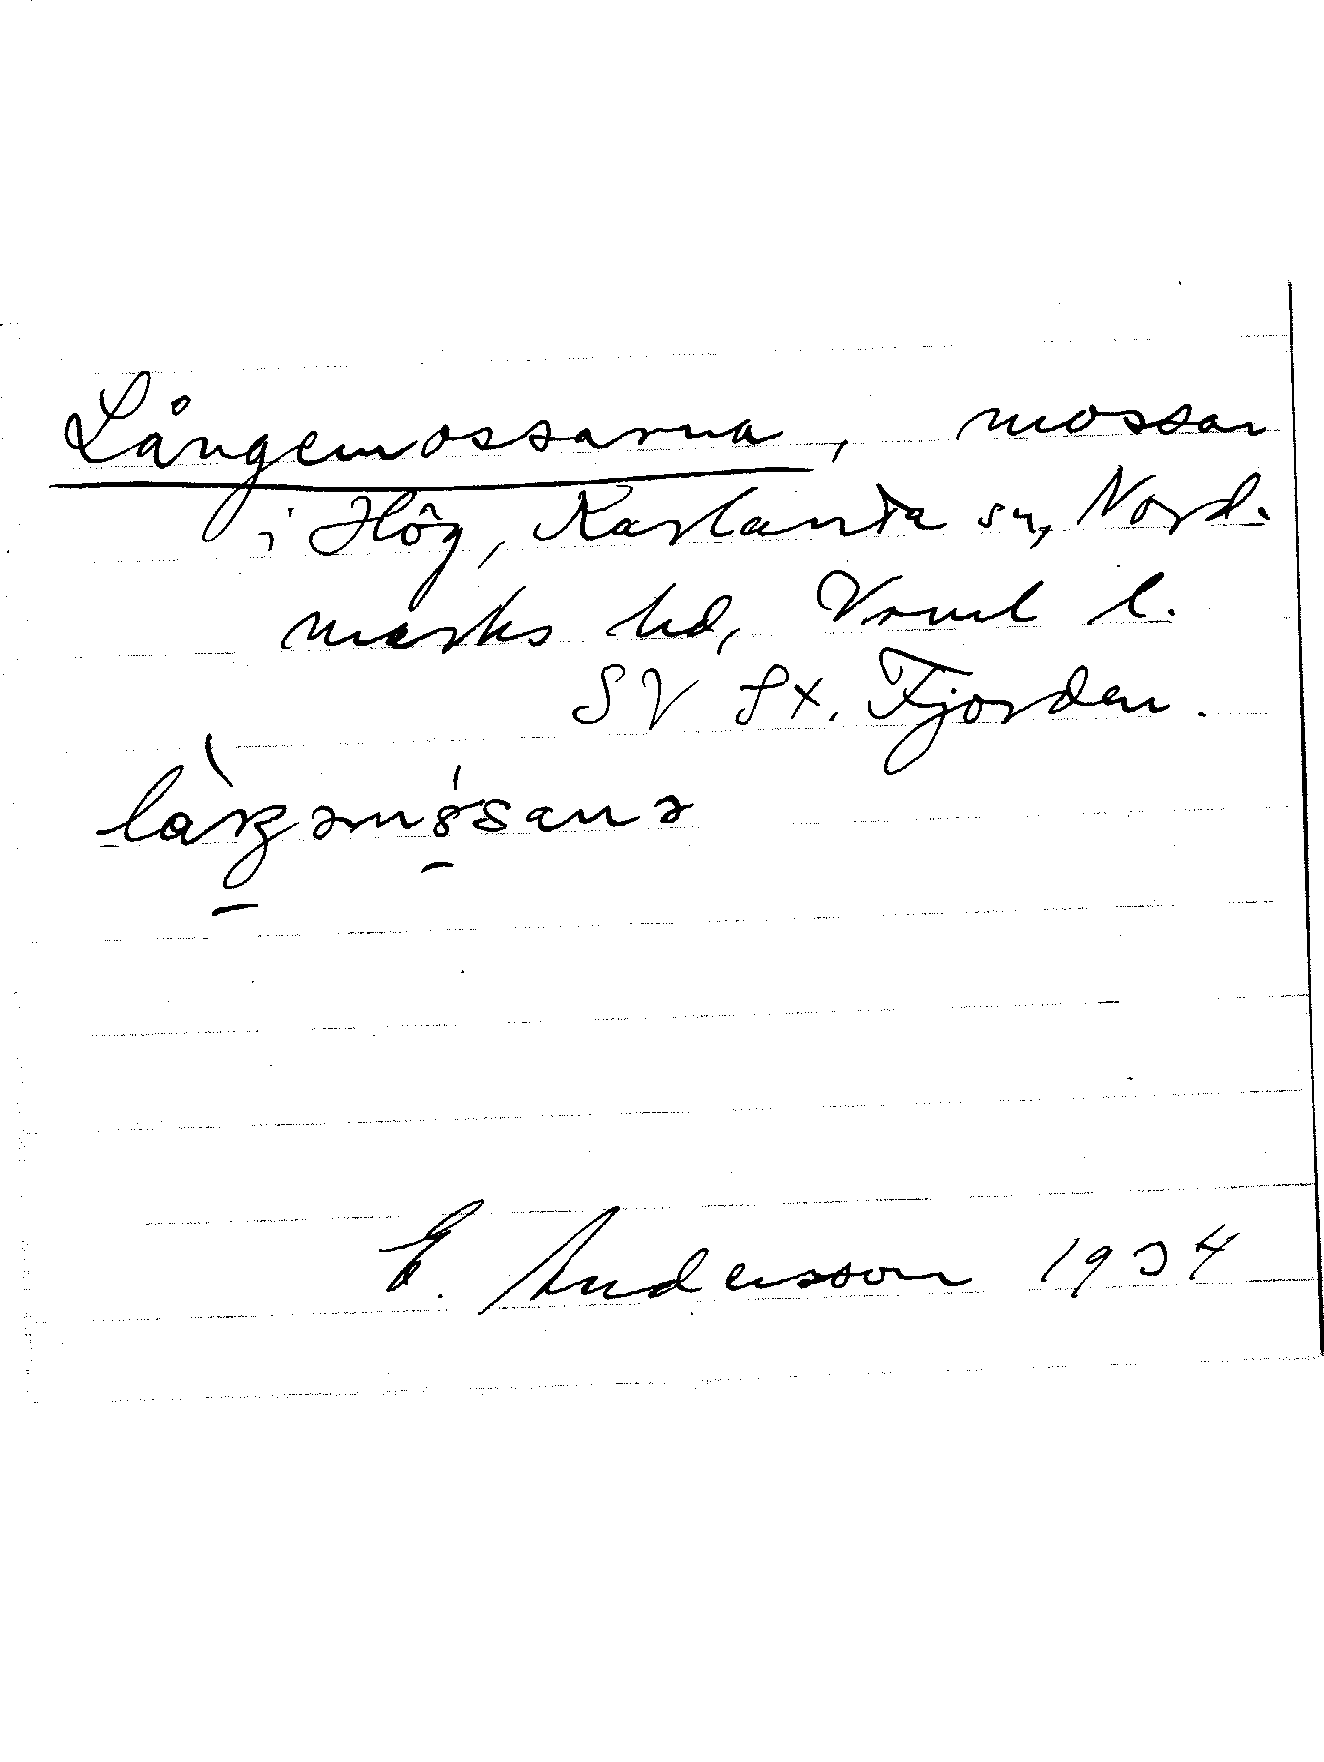 Långemossarna, mossar
i Hög, Karlanda sn, Nord-
marks hd, Vrml l.
SV St. Fjorden.
E. Andersson 1934